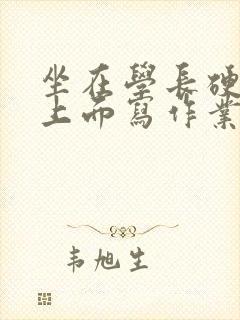 坐在學長硬
上而寫作業
韦旭生